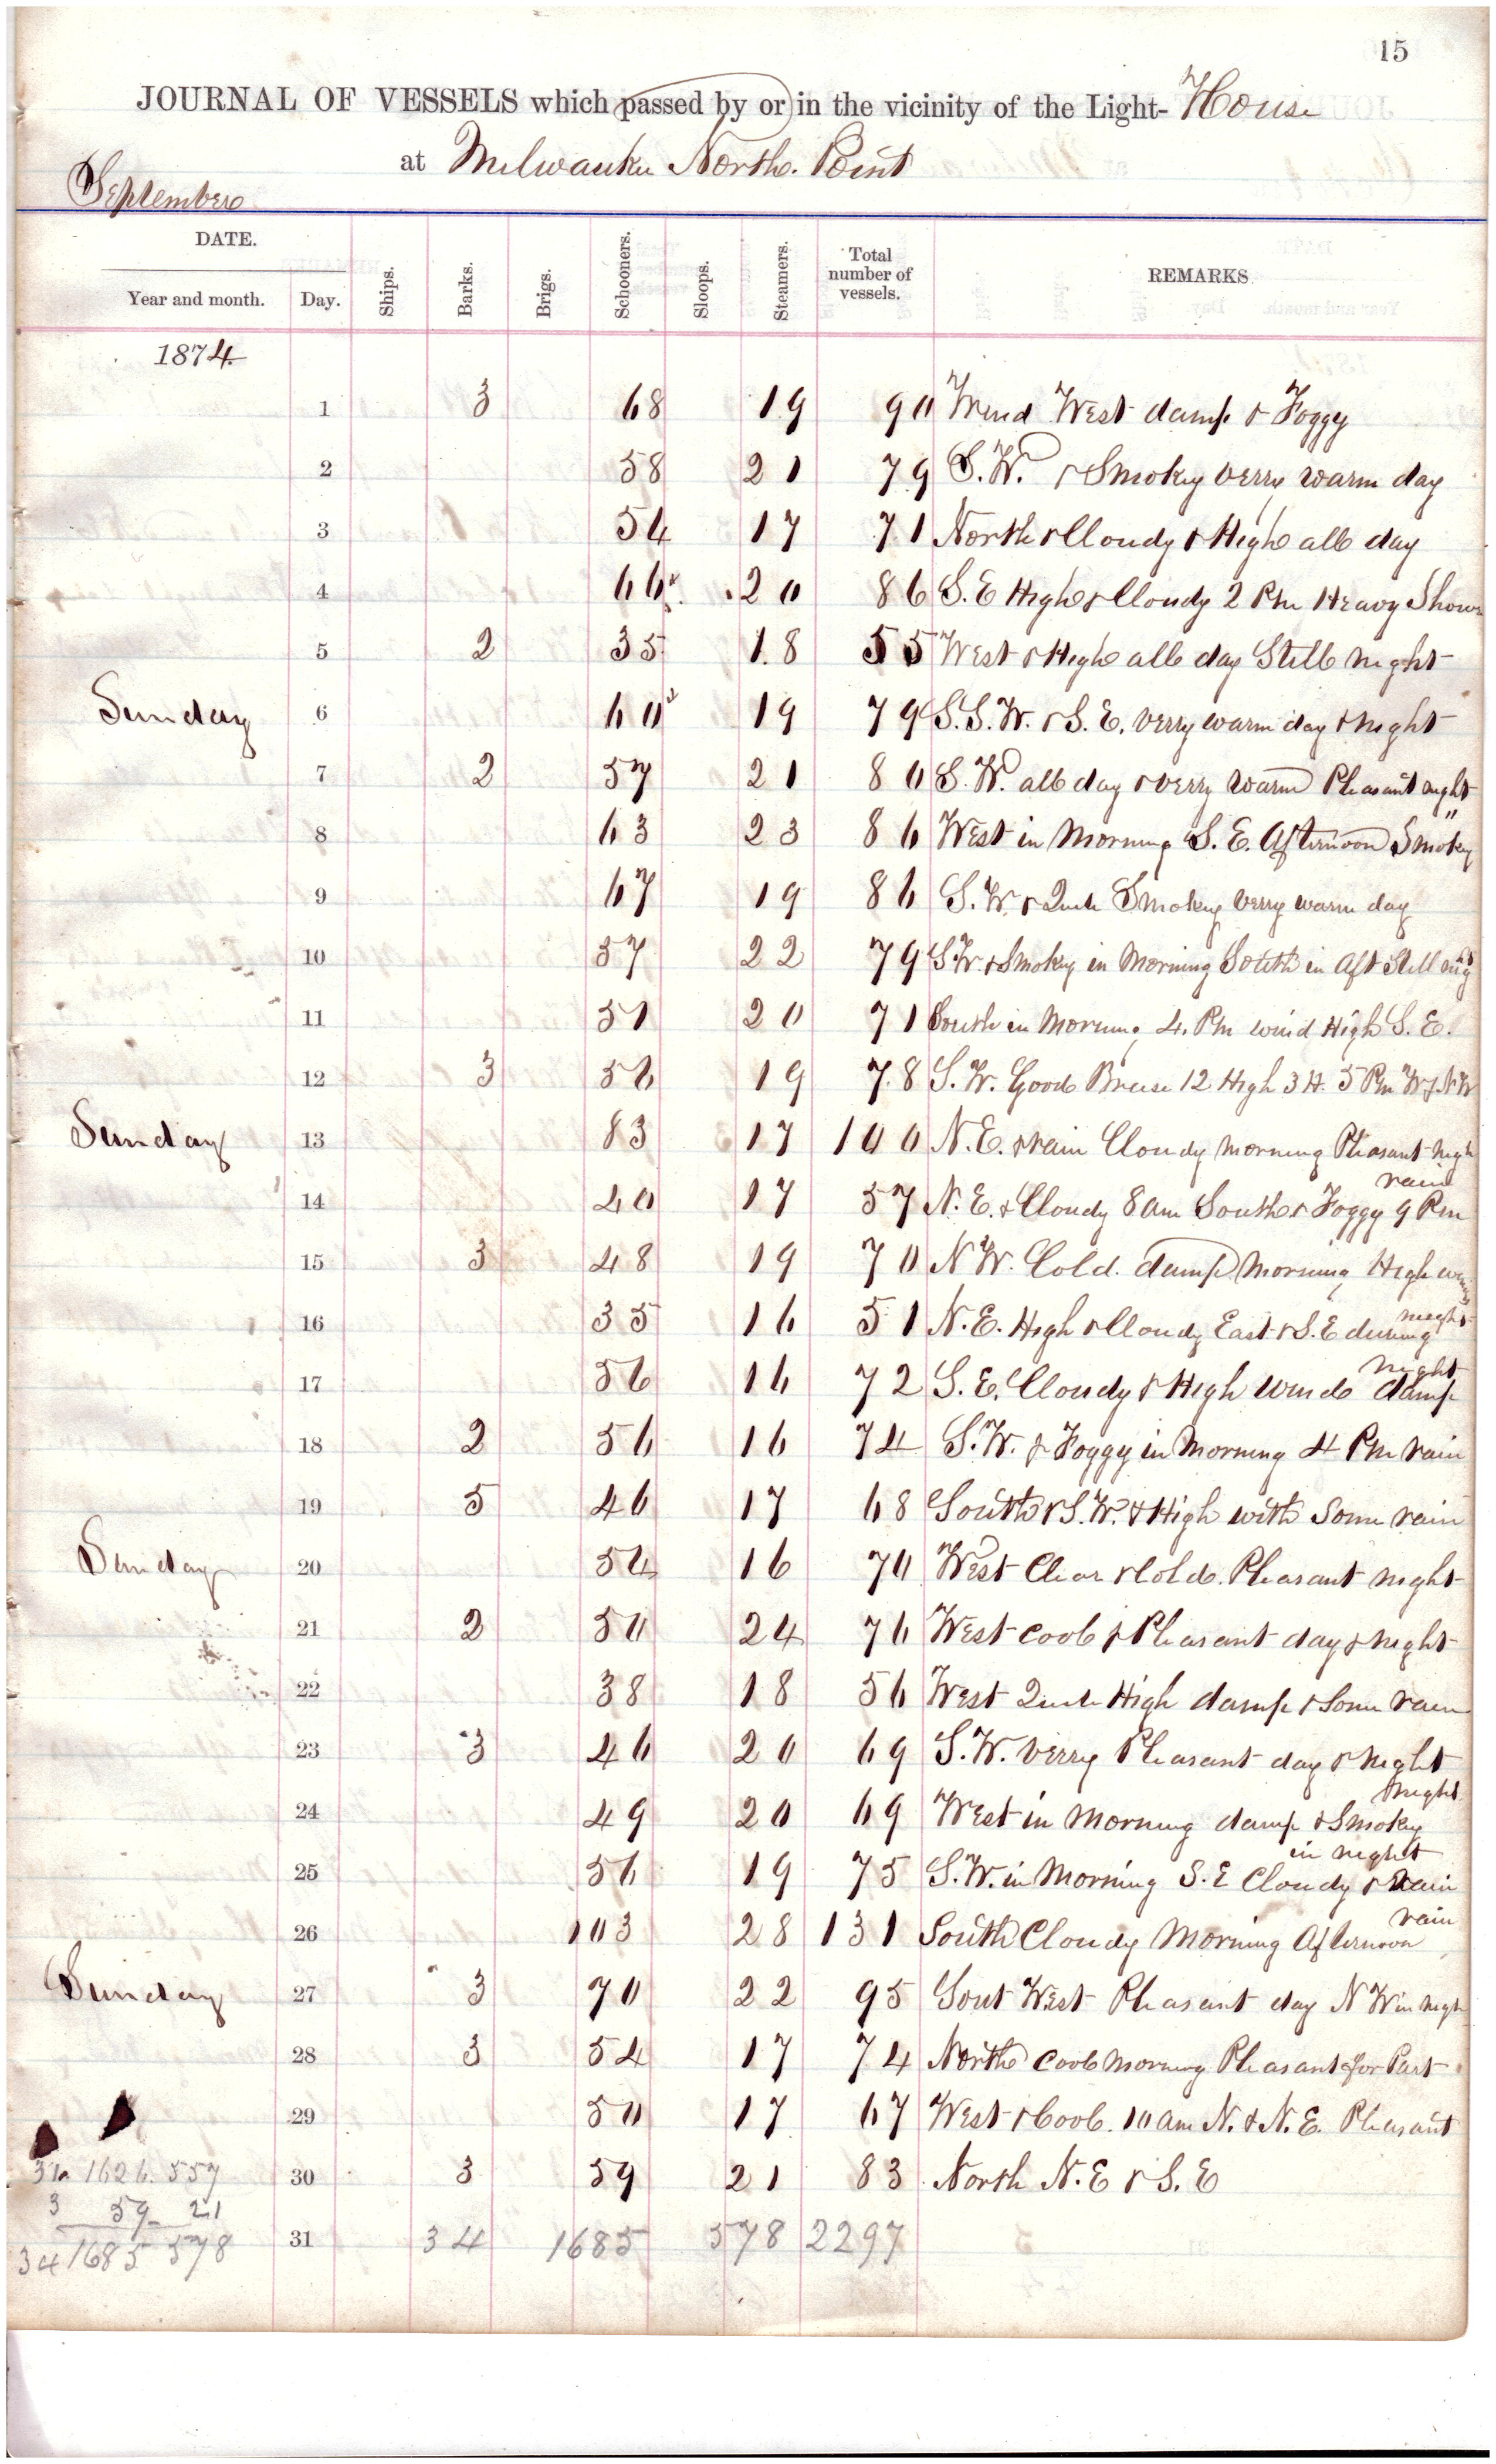 15
JOURNAL OF VESSELS which passed by or in the vicinity of the Light-House
at Milwaukee North. Point
September
DATE. Ships. Barks. Brigs. Schooners. Sloops. Steamers. Total number of vessels. REMARKS
Year and month. Day.
1874
1 3 68 19 90 Wind West damp & Foggy
2 58 21 79 S.W. & Smoky verry warm day
3 54 17 71 North & Cloudy & High all day
4 66 20 86 S.E High & Cloudy 2 Pm Heavy Show
5 2 35 18 55 West & High all day Still night
Sunday 6 60 19 79 S.S.W. & S.E. verry warm day & night
7 2 57 21 80 S.W. all day & verry warm Pleasant night
8 63 23 86 West in Morning S.E. Afternoon Smoky "
9 67 19 86 S.W. & Smoky verry warm day
10 57 22 79 S.W. & Smoky in Morning South in Aft Still
11 51 20 71 South in Morning 4. Pm wind High S.E.
12 3 56 19 78 S.W. Good Breese 12 High 3 H. 5 Pm W & N.W
Sunday 13 83 17 100 N.E. & rain Cloudy morning Pleasant nigh
14 40 17 57 N.E. & Cloudy 8 am South & Foggy 9 Pm rain
15 3 48 19 70 N W. Cold. damp Morning High
16 35 16 51 N.E. High & Cloudy East & S.E during night
17 56 16 72 S.E. Cloudy & High wind damp night
18 2 56 16 74 S.W. & Foggy in Morning 4 Pm rain
19 5 46 17 68 South & S.W. & High with Some rain
Sunday 20 54 16 70 West Clear & Cold. Pleasant night
21 2 50 24 76 West cool & Pleasant day & night
22 38 18 56 West High damp & Some rain
23 3 46 20 69 S.W. verry Pleasant day & night
24 49 20 69 West in Morning damp & Smoky night
25 56 19 75 S.W. in Morning S.E Cloudy & rain in night
26 103 28 131 South Cloudy Morning Afternoon rain
Sunday 27 3 70 22 95 Sout West Pleasant day N W in nigh
28 3 54 17 74 North cool morning Pleasant for Part
29 50 17 67 West & Cool. 10 am N. & N.E. Pleasant
31 1626 557 30 3 59 21 83 North N.E & S.E
3 59 21
34 1685 578 31 34 1685 578 2297